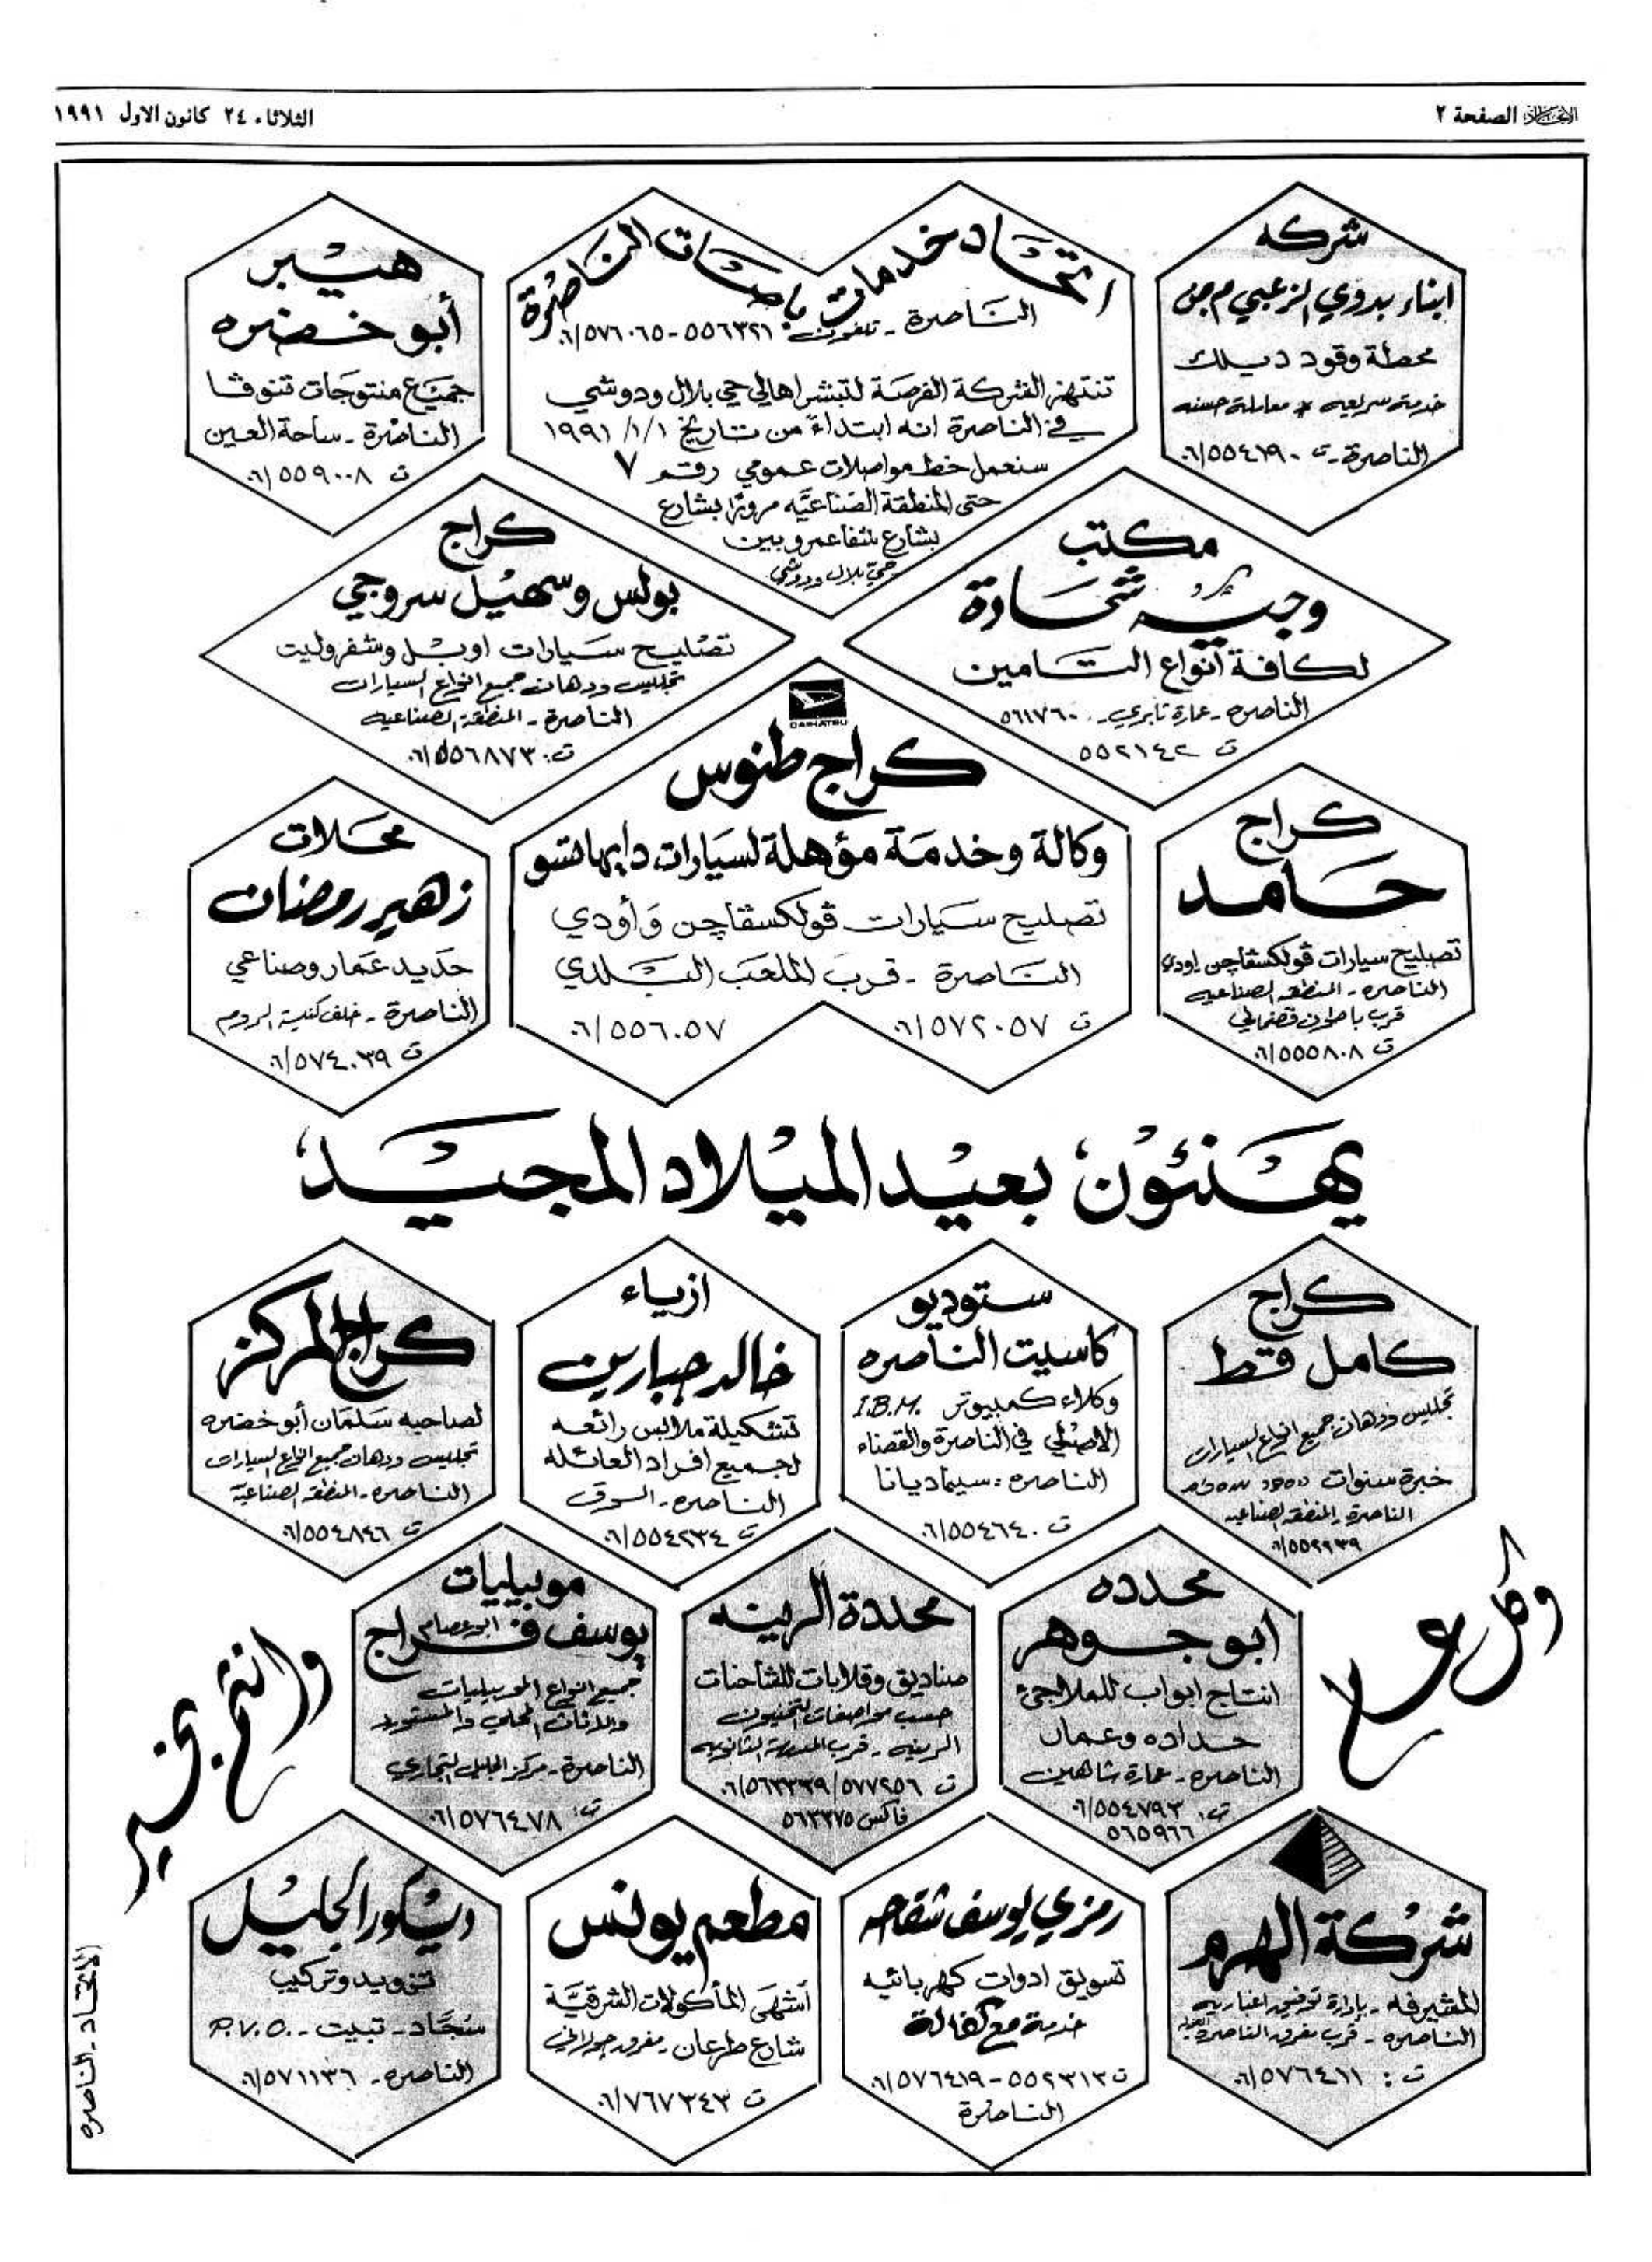 الاتحاد الصفحة ٢
الثلاثاء ٢٤ كانون الاول ١٩٩١
شركه
ابناء بدوي الزعبي م.ض
محطة وقود ديلك
خدمة سريعه * معاملة حسنه
الناصرة - ت ٠٦/٥٥٤١٩٠
اتحاد خدمات باصات الناصرة
الناصرة - تلفون: ٥٥٦٣٢١-٠٦/٥٧٦٠٦٥
تنتهز الشركة الفرصة لتبشر اهالي حي بلال ودوشي
في الناصرة انه ابتداءً من تاريخ ١/١/١٩٩١
سنعمل خط مواصلات عمومي رقم ٧
حتى المنطقة الصناعيّة مرورًا بشارع
بشارع شفاعمرو بين
حيّ بلال ودوشي
هيبر
أبو خضره
جميع منتوجات تنوفا
الناصرة - ساحة العين
ت ٠٦/٥٥٩٠٠٨
مكتب
وجيه شحادة
لكافة أنواع التامين
الناصره - عمارة تابري - ٥٦١٧٦٠
ت ٥٥٢١٤٢
كراج
بولس وسهيل سروجي
تصليح سيارات اوبل وشفروليت
تجليس ودهان جميع انواع السيارات
الناصرة - المنطقة الصناعيه
ت: ٠٦/٥٥٦٨٧٣
DAIHATSU
كراج طنوس
وكالة وخدمة مؤهلة لسيارات دايهاتسو
تصليح سيارات ڤولكسڤاچن وَأودي
الناصرة - قرب الملعب البلدي
ت ٠٦/٥٧٢٠٥٧
٠٦/٥٥٦٠٥٧
كراج
حامد
تصليح سيارات ڤولكسڤاچن اودي
الناصره - المنطقه الصناعيه
قرب باطون قضماني
ت ٠٦/٥٥٥٨٠٨
محلات
زهير رمضان
حديد عمار وصناعي
الناصرة - خلف كنيسة الروم
ت ٠٦/٥٧٤٠٣٩
يهنئون بعيد الميلاد المجيد
كراج
كامل قط
تجليس ودهان جميع انواع السيارات
خبرة سنوات
الناصرة - المنطقه الصناعيه
٠٦/٥٥٢٩٣٩
ستوديو
كاسيت الناصره
وكلاء كمبيوتر I.B.M.
الاصلي في الناصرة والقضاء
الناصره: سينما ديانا
ت ٠٦/٥٥٤٦٤٠
ازياء
خالد جبارين
تشكيلة ملابس رائعه
لجميع افراد العائلة
الناصره - السوق
ت ٠٦/٥٥٤٢٣٤
كراج المركز
لصاحبه سلمان أبو خضره
تجليس ودهان جميع انواع السيارات
الناصره - المنطقه الصناعيّة
ت ٠٦/٥٥٤٨٤٦
وكل عام
محدده
أبو جوهر
انتاج ابواب للملاجئ
حداده وعمار
الناصره - عمارة شاهين
ت: ٠٦/٥٥٤٧٩٣
٥٦٥٩٦٦
محددة الرينه
صناديق وقلابات للشاحنات
حسب مواصفات التخنيون
الرينه - قرب المدرسة الثانويه
ت ٠٦/٥٦٣٣٣٩/٥٧٧٢٥٦
فاكس ٥٦٣٣٧٥
موبيليات
يوسف فراج ابو عصام
جميع انواع الموبيليات
والاثاث المحلي والمستورد
الناصرة - مركز الجليل التجاري
ت: ٠٦/٥٧٦٤٧٨
وانتم بخير
شركة الهرم
المشيرفه - بادارة توفيق اغباريه
الناصره - قرب مفرق الناصرة
ت: ٠٦/٥٧٦٤١١
رمزي يوسف شقاحه
تسويق ادوات كهربائيه
خدمة مع كفالة
ت ٥٥٢٣١٣-٠٦/٥٧٦٤١٩
الناصرة
مطعم يونس
أشهى المأكولات الشرقيّة
شارع طرعان - مفرق جولاني
ت ٠٦/٧٦٧٣٤٣
ديكور الجليل
تزويد وتركيب
سجّاد - تبيت - P.V.C.
الناصره - ٠٦/٥٧١١٣٦
الاتحاد - الناصره